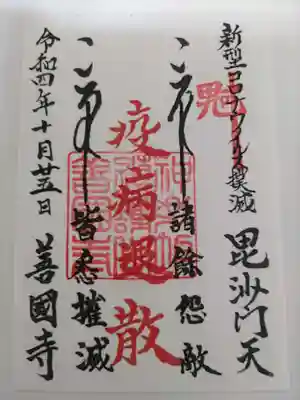 新型コロナウイルス撲滅
毘沙門天
諸餘怨敵
疫病退散
皆悉摧滅
令和四年十月廿五日
善國寺